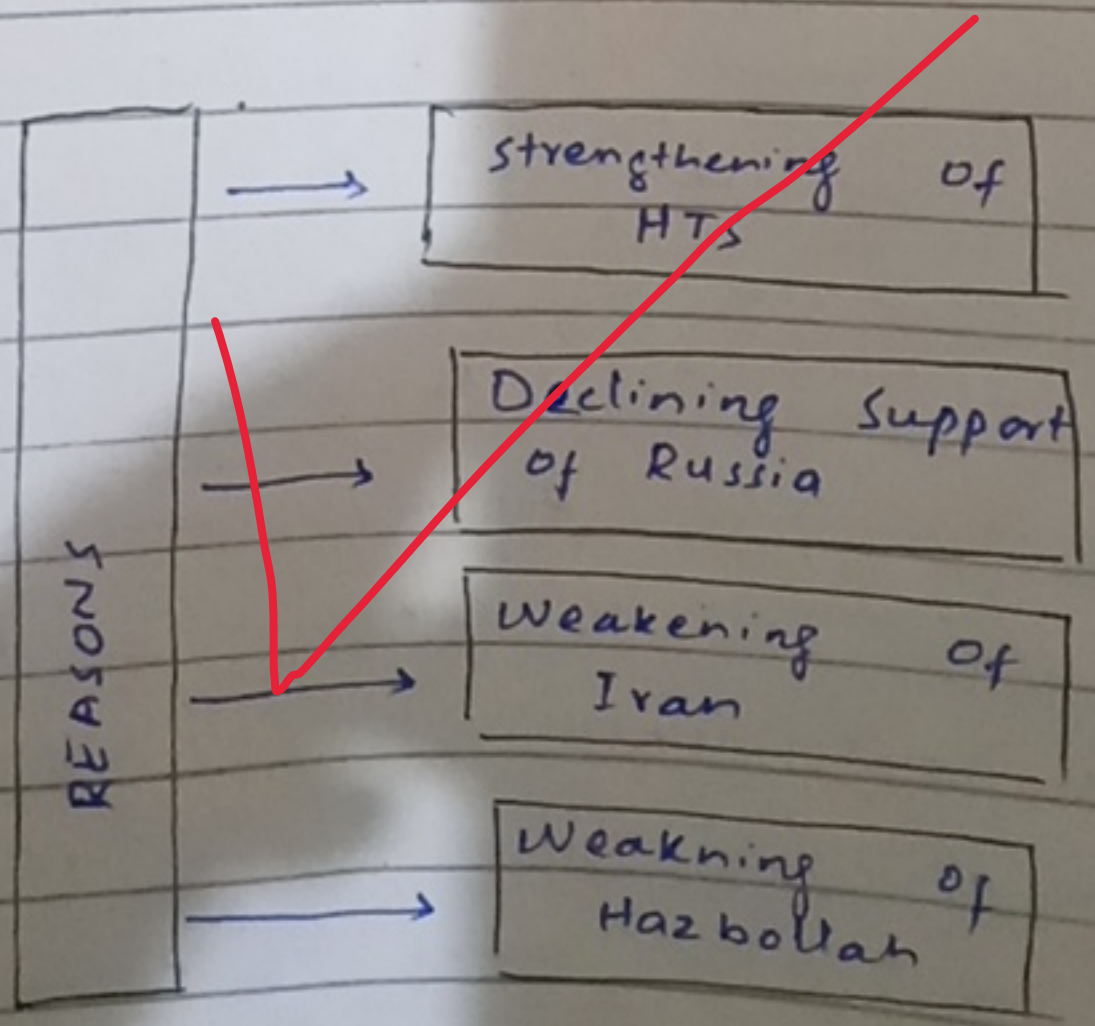 REASONS
Strengthening Of
HTS
Declining Support
Of Russia
Weakening Of
Iran
Weakning Of
Hazbollah